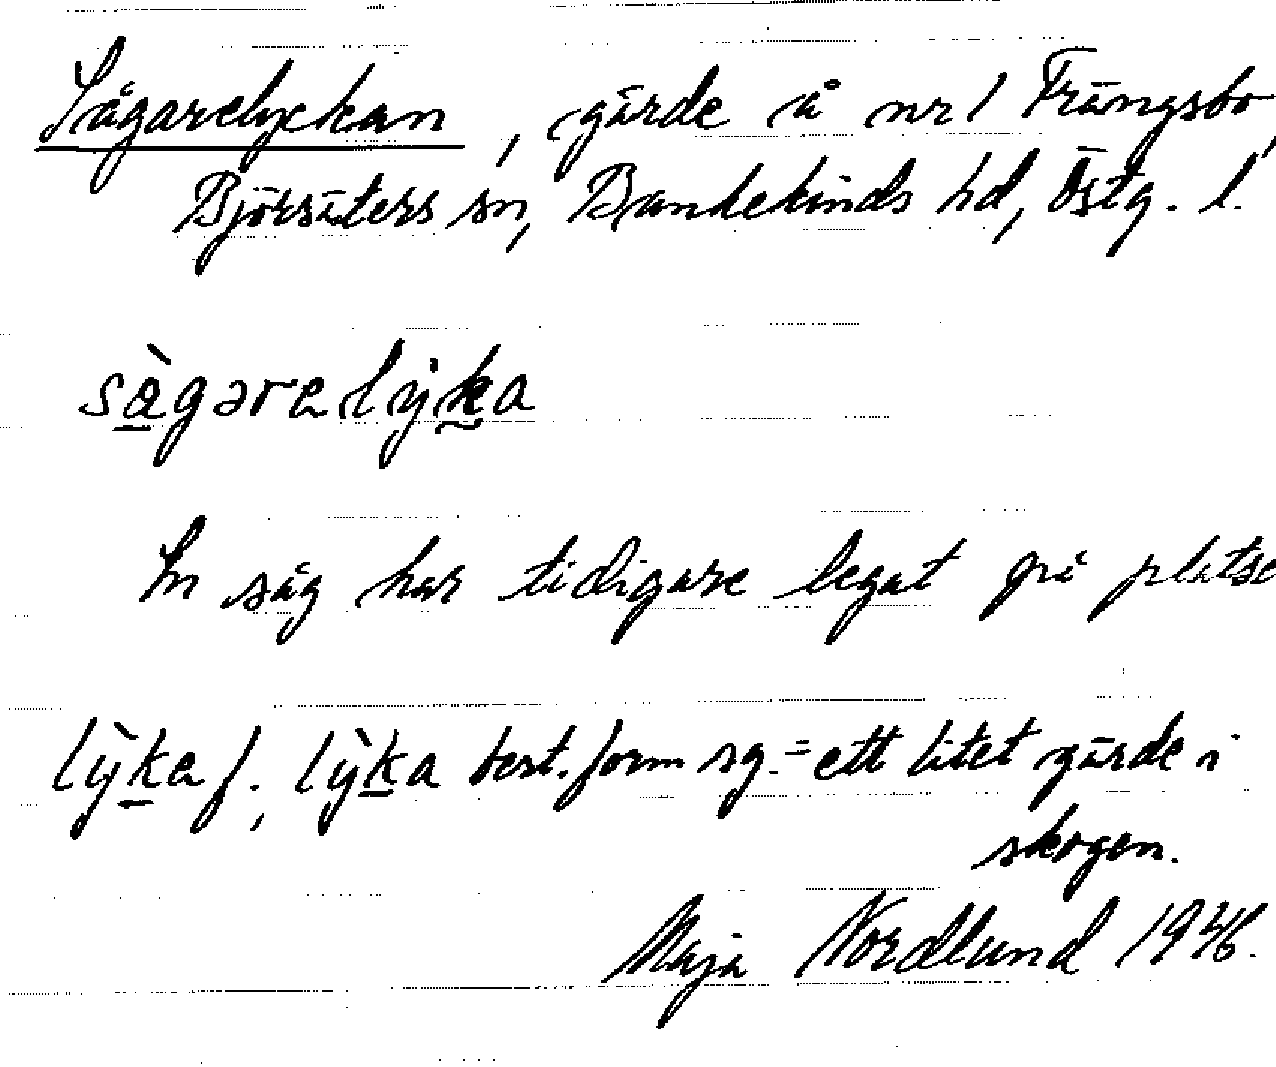 Sågarelyckan, gärde å nr 1 Frängsbo,
Björsäters sn, Bankekinds hd, Östg. l.
sàgərelỳka
En såg har tidigare legat på platse
lỳka f., lỳka best. form sg. = ett litet gärde i
skogen.
Maja Nordlund 1946.